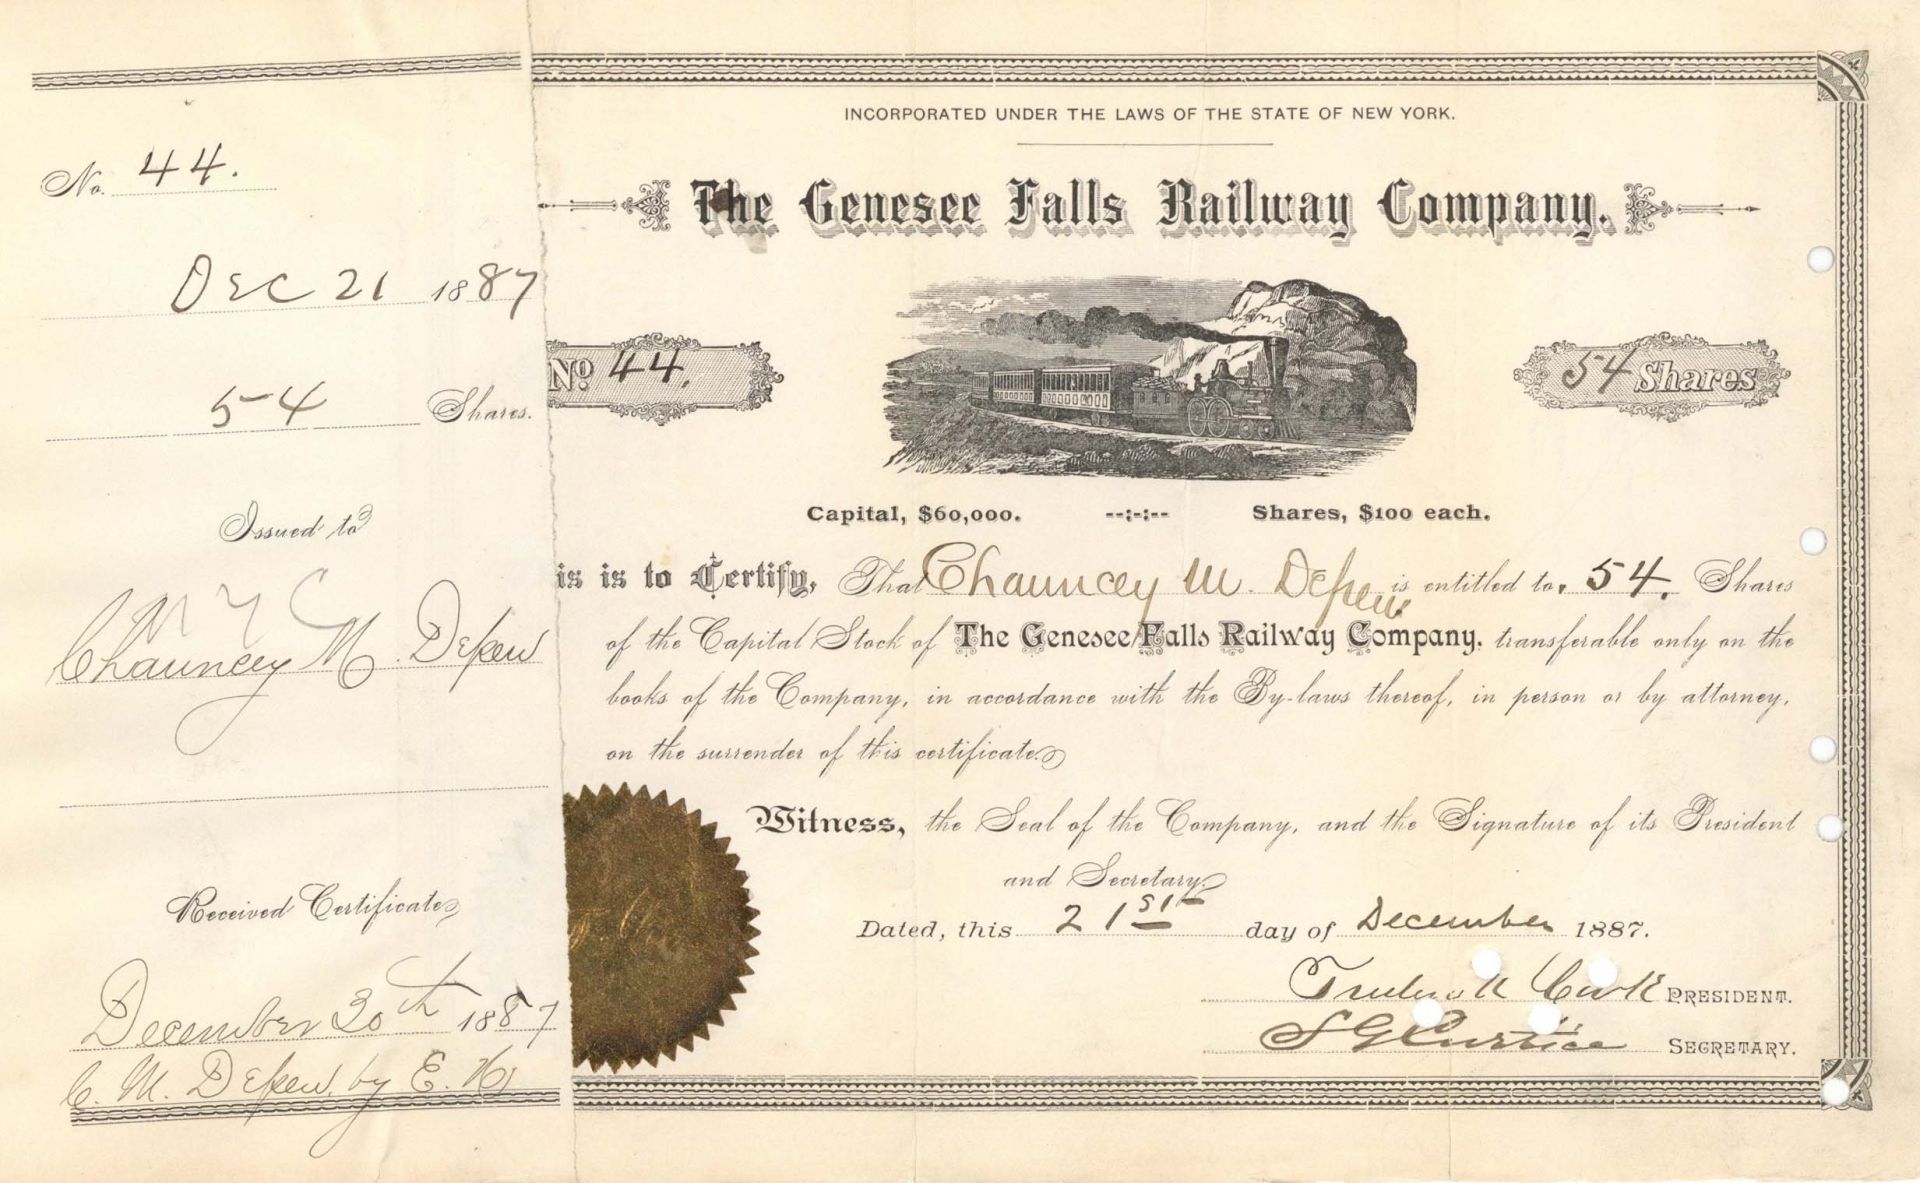 No. 44.
Dec 21 1887
54 Shares.
Issued to
Chauncey M. Depew
Received Certificate
December 30th 1887
C. M. Depew by E.
INCORPORATED UNDER THE LAWS OF THE STATE OF NEW YORK.
The Genesee Falls Railway Company.
No 44.
54 Shares
Capital, $60,000. --:-:-- Shares, $100 each.
is is to Certify, That Chauncey M. Depew is entitled to 54. Shares
of the Capital Stock of The Genesee Falls Railway Company, transferable only on the
books of the Company, in accordance with the By-laws thereof, in person or by attorney,
on the surrender of this certificate.
Witness, the Seal of the Company, and the Signature of its President
and Secretary.
Dated, this 21st day of December 1887.
Frederick Cook PRESIDENT.
S G Curtice SECRETARY.